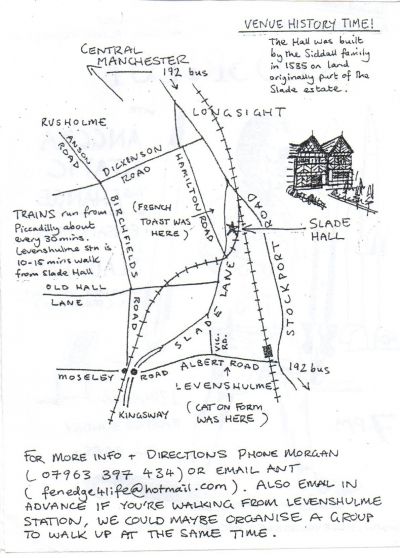 VENUE HISTORY TIME!
The Hall was built
by the Siddall family
in 1585 on land
originally part of the
Slade estate.
CENTRAL
MANCHESTER
192 bus
LONGSIGHT
RUSHOLME
ANSON
ROAD
DICKENSON
ROAD
HAMILTON ROAD
(FRENCH
TOAST WAS
HERE)
BIRCHFIELDS
ROAD
TRAINS run from
Piccadilly about
every 30 mins.
Levenshulme Stn is
10-15 mins walk
from Slade Hall
SLADE
HALL
STOCKPORT ROAD
OLD HALL
LANE
SLADE LANE
VIC.
RD.
ALBERT ROAD
192 bus
MOSELEY ROAD
LEVENSHULME
(CAT ON FORM
WAS HERE)
KINGSWAY
FOR MORE INFO + DIRECTIONS PHONE MORGAN
(07963 397 434) OR EMAIL ANT
(fenedge4life@hotmail.com). ALSO EMAIL IN
ADVANCE IF YOU'RE WALKING FROM LEVENSHULME
STATION, WE COULD MAYBE ORGANISE A GROUP
TO WALK UP AT THE SAME TIME.